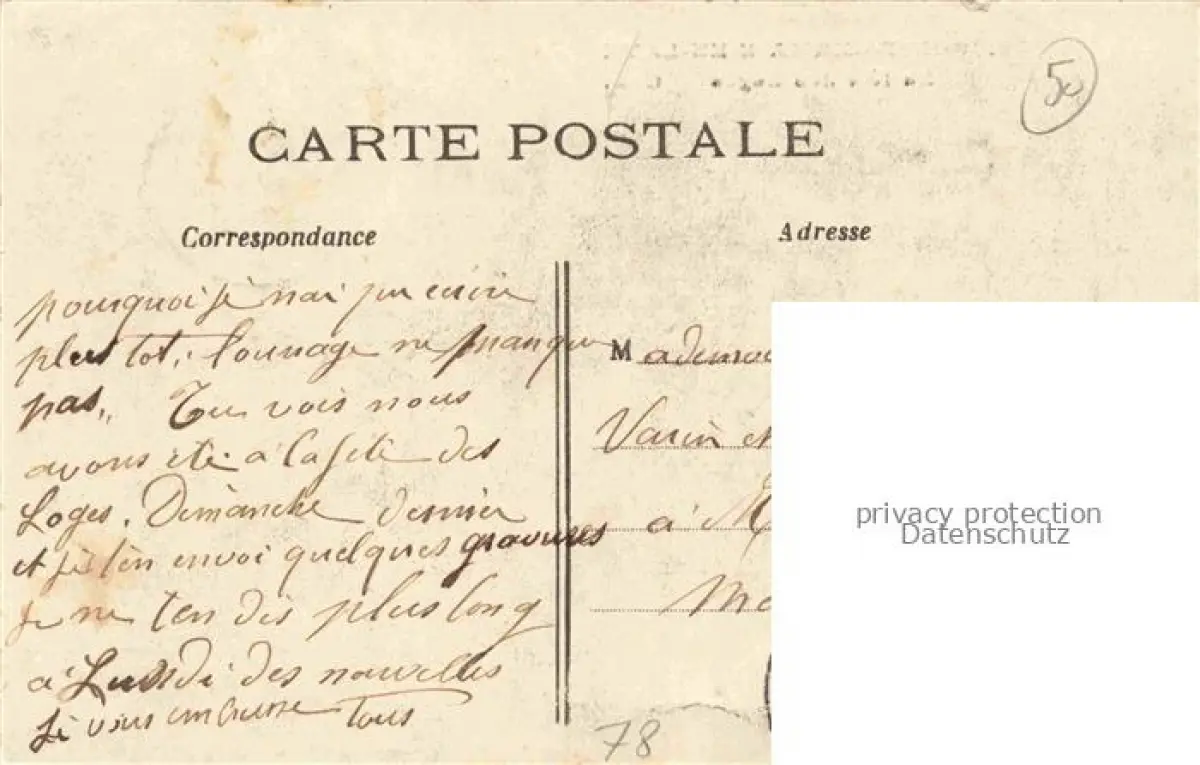 50
CARTE POSTALE
Correspondance
Adresse
pourquoi je nai pu ecrire
plus tot, l'ouvrage ne manque
pas, Tu vois nous
avons été à la fete des
Loges. Dimanche dernier
et je t'en envoi quelques gravures
Je ne ten dis plus long
à Lundi des nouvelles
Je vous embrasse Tous
Mademoi
Varin et
à M
Ma
78
privacy protection
Datenschutz